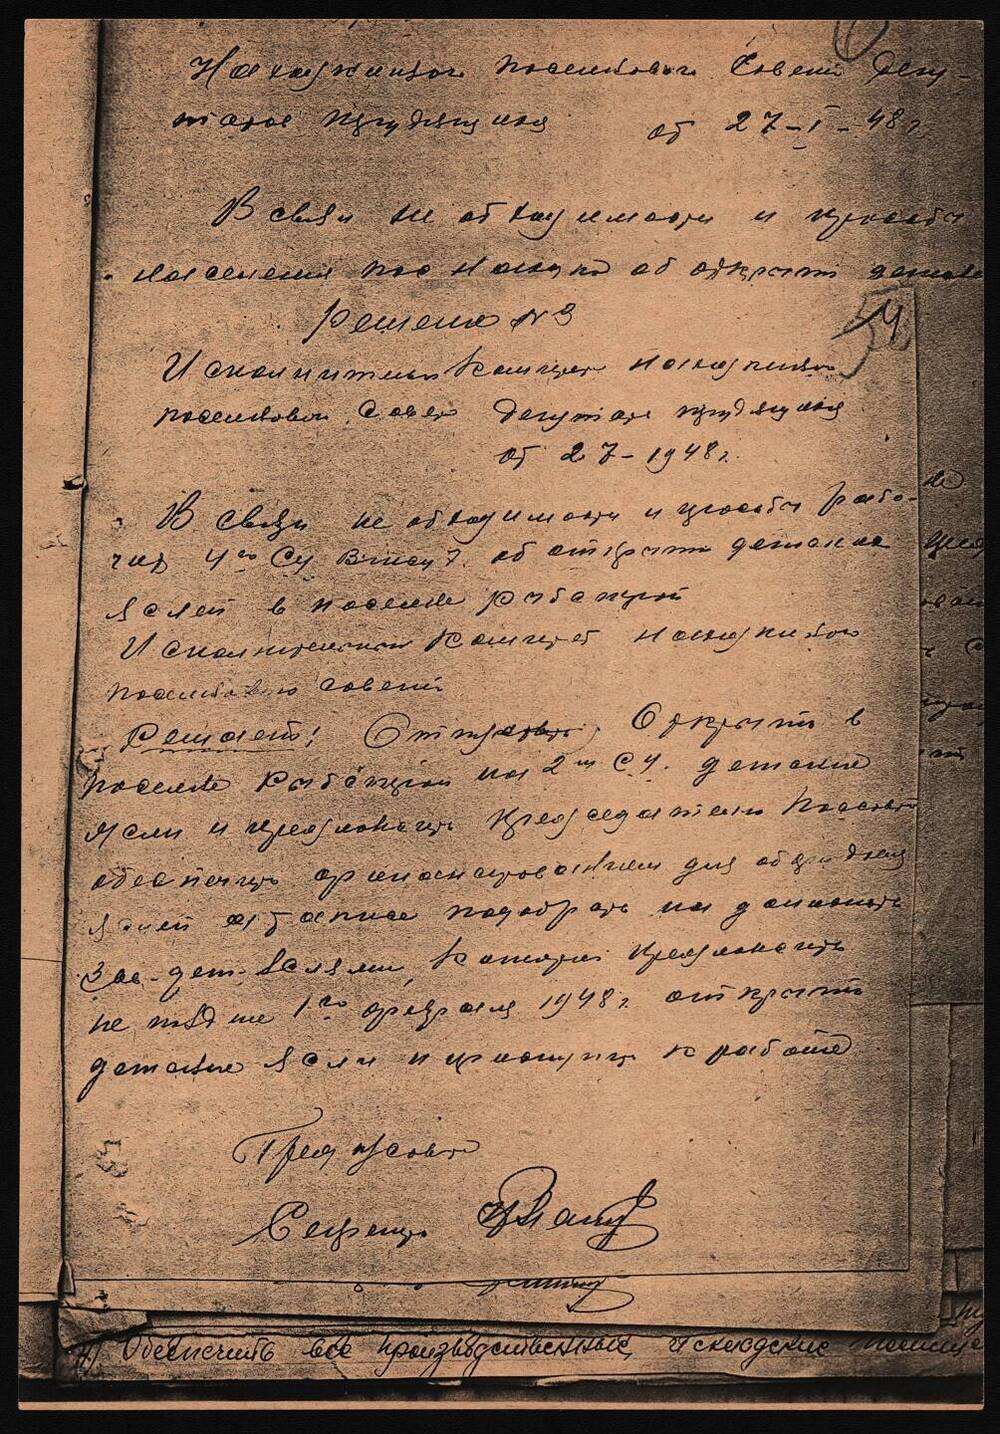 Находкинского поселкового Совета депу-
татов трудящихся от 27-I-48 г.
В связи не обходимости и просьбы
населения пос Находка об открыти детских
Решение № 3
4
Исполнительн Комитет Находкинского
поселковой Совет депутатов трудящихся
от 27-1948 г.
В связи не обходимости и просьбы рабо-
чих 4го СУ об открыти детских
яслей в поселке Рыбацкой
Исполнительный Комитет Находкинского
поселкового совета
Решает! Открыть в
поселке Рыбацкой на 2м СУ. детские
ясли и предложить председателю
обеспечить финансированием для
яслей а также подобрать на должность
Зав-дет-Яслями, которой предложить
не позднее 1го февраля 1948 г. открыть
детские ясли и приступить к работе
Пред п/совета
Секретарь
53
Обеспечить все производственные, складские